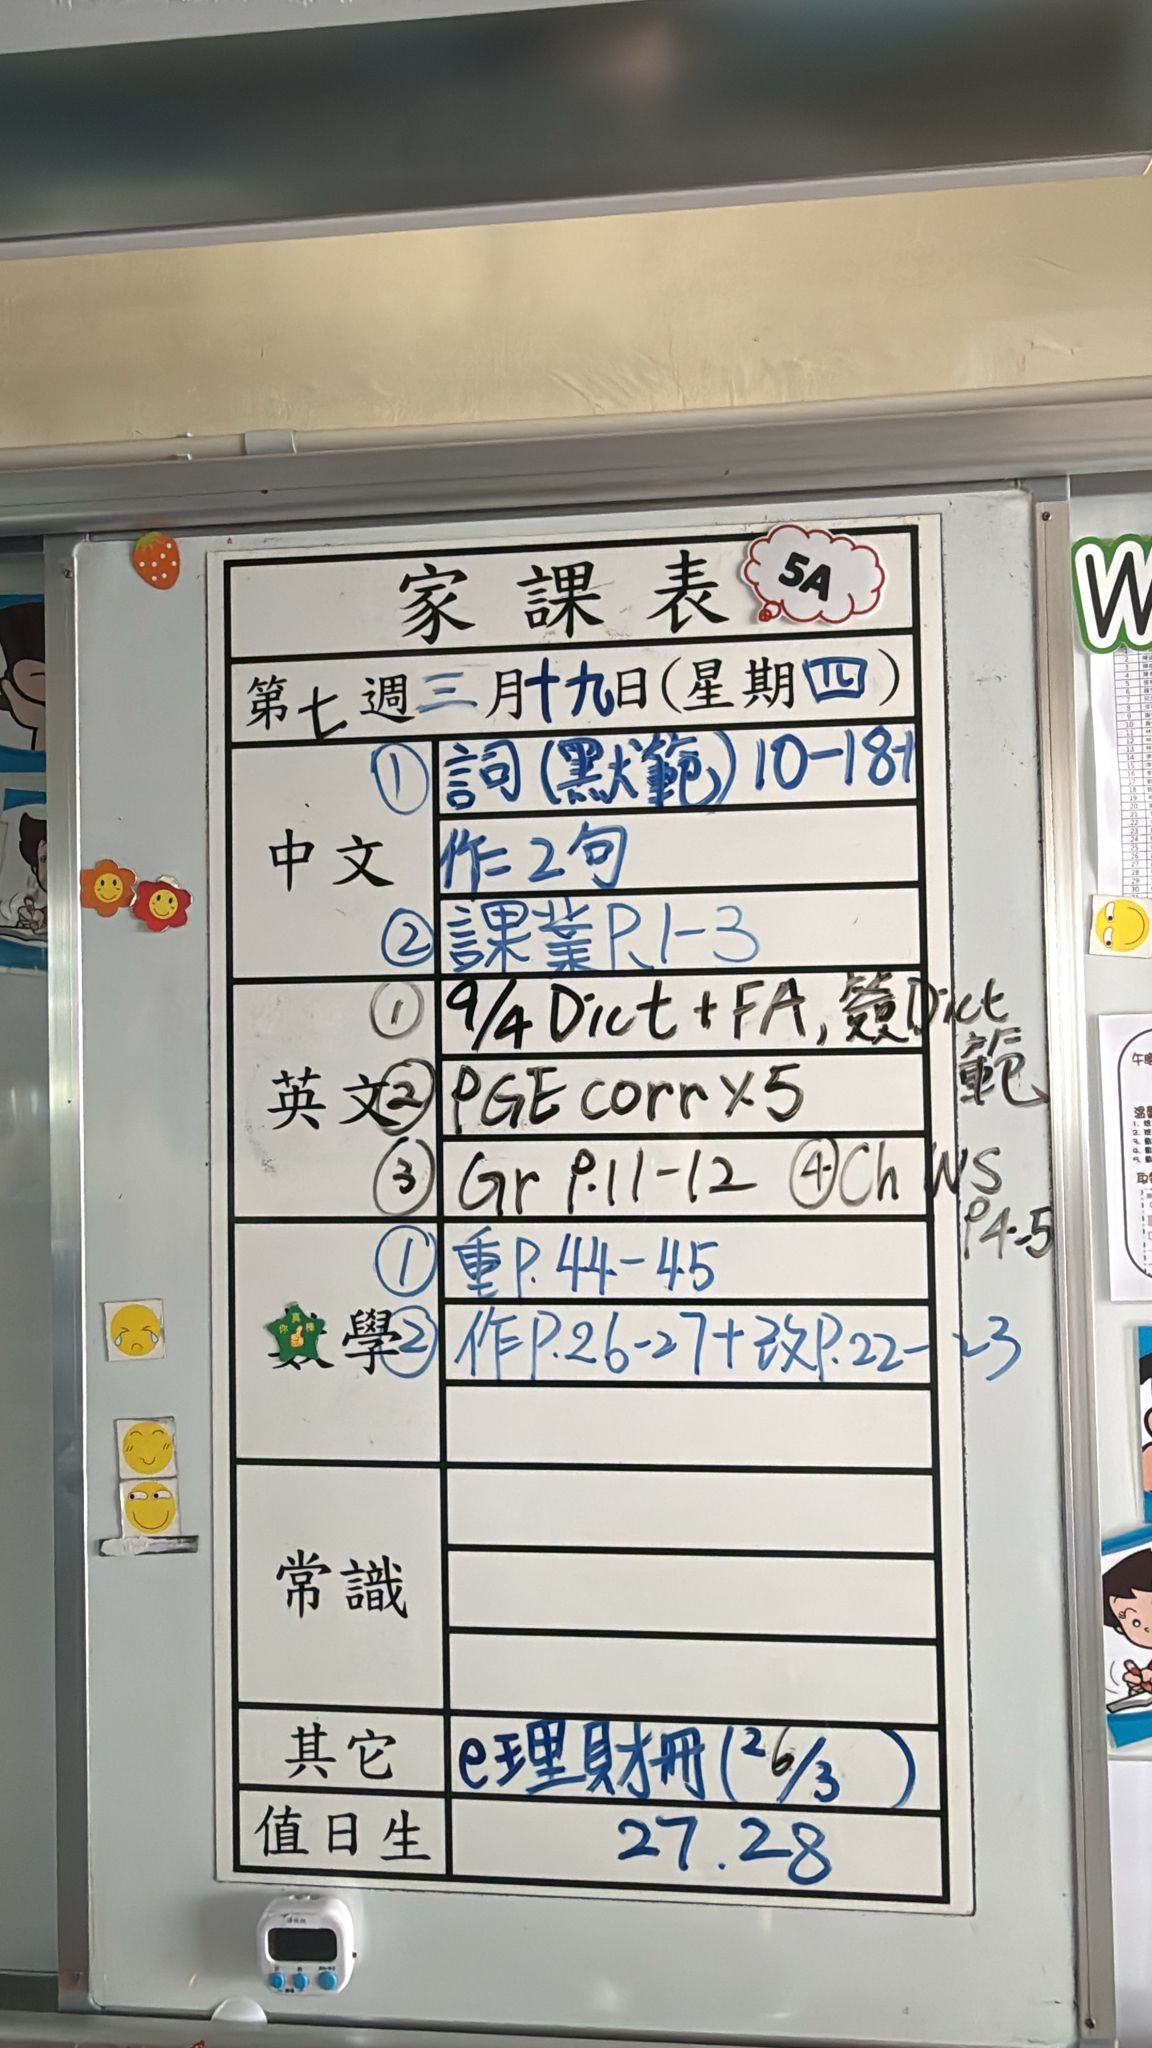 家課表 5A
第七週三月十九日(星期四)
中文
① 詞(默範)10-18+
作2句
② 課業P.1-3
英文
① 9/4 Dict + FA, 簽Dict
範
② PGE corr x 5
③ Gr P.11-12 ④ Ch WS
P4-5
數學
① 重P.44-45
② 作P.26-27+改P.22-23
常識
其它
e理財冊(26/3)
值日生
27.28
W